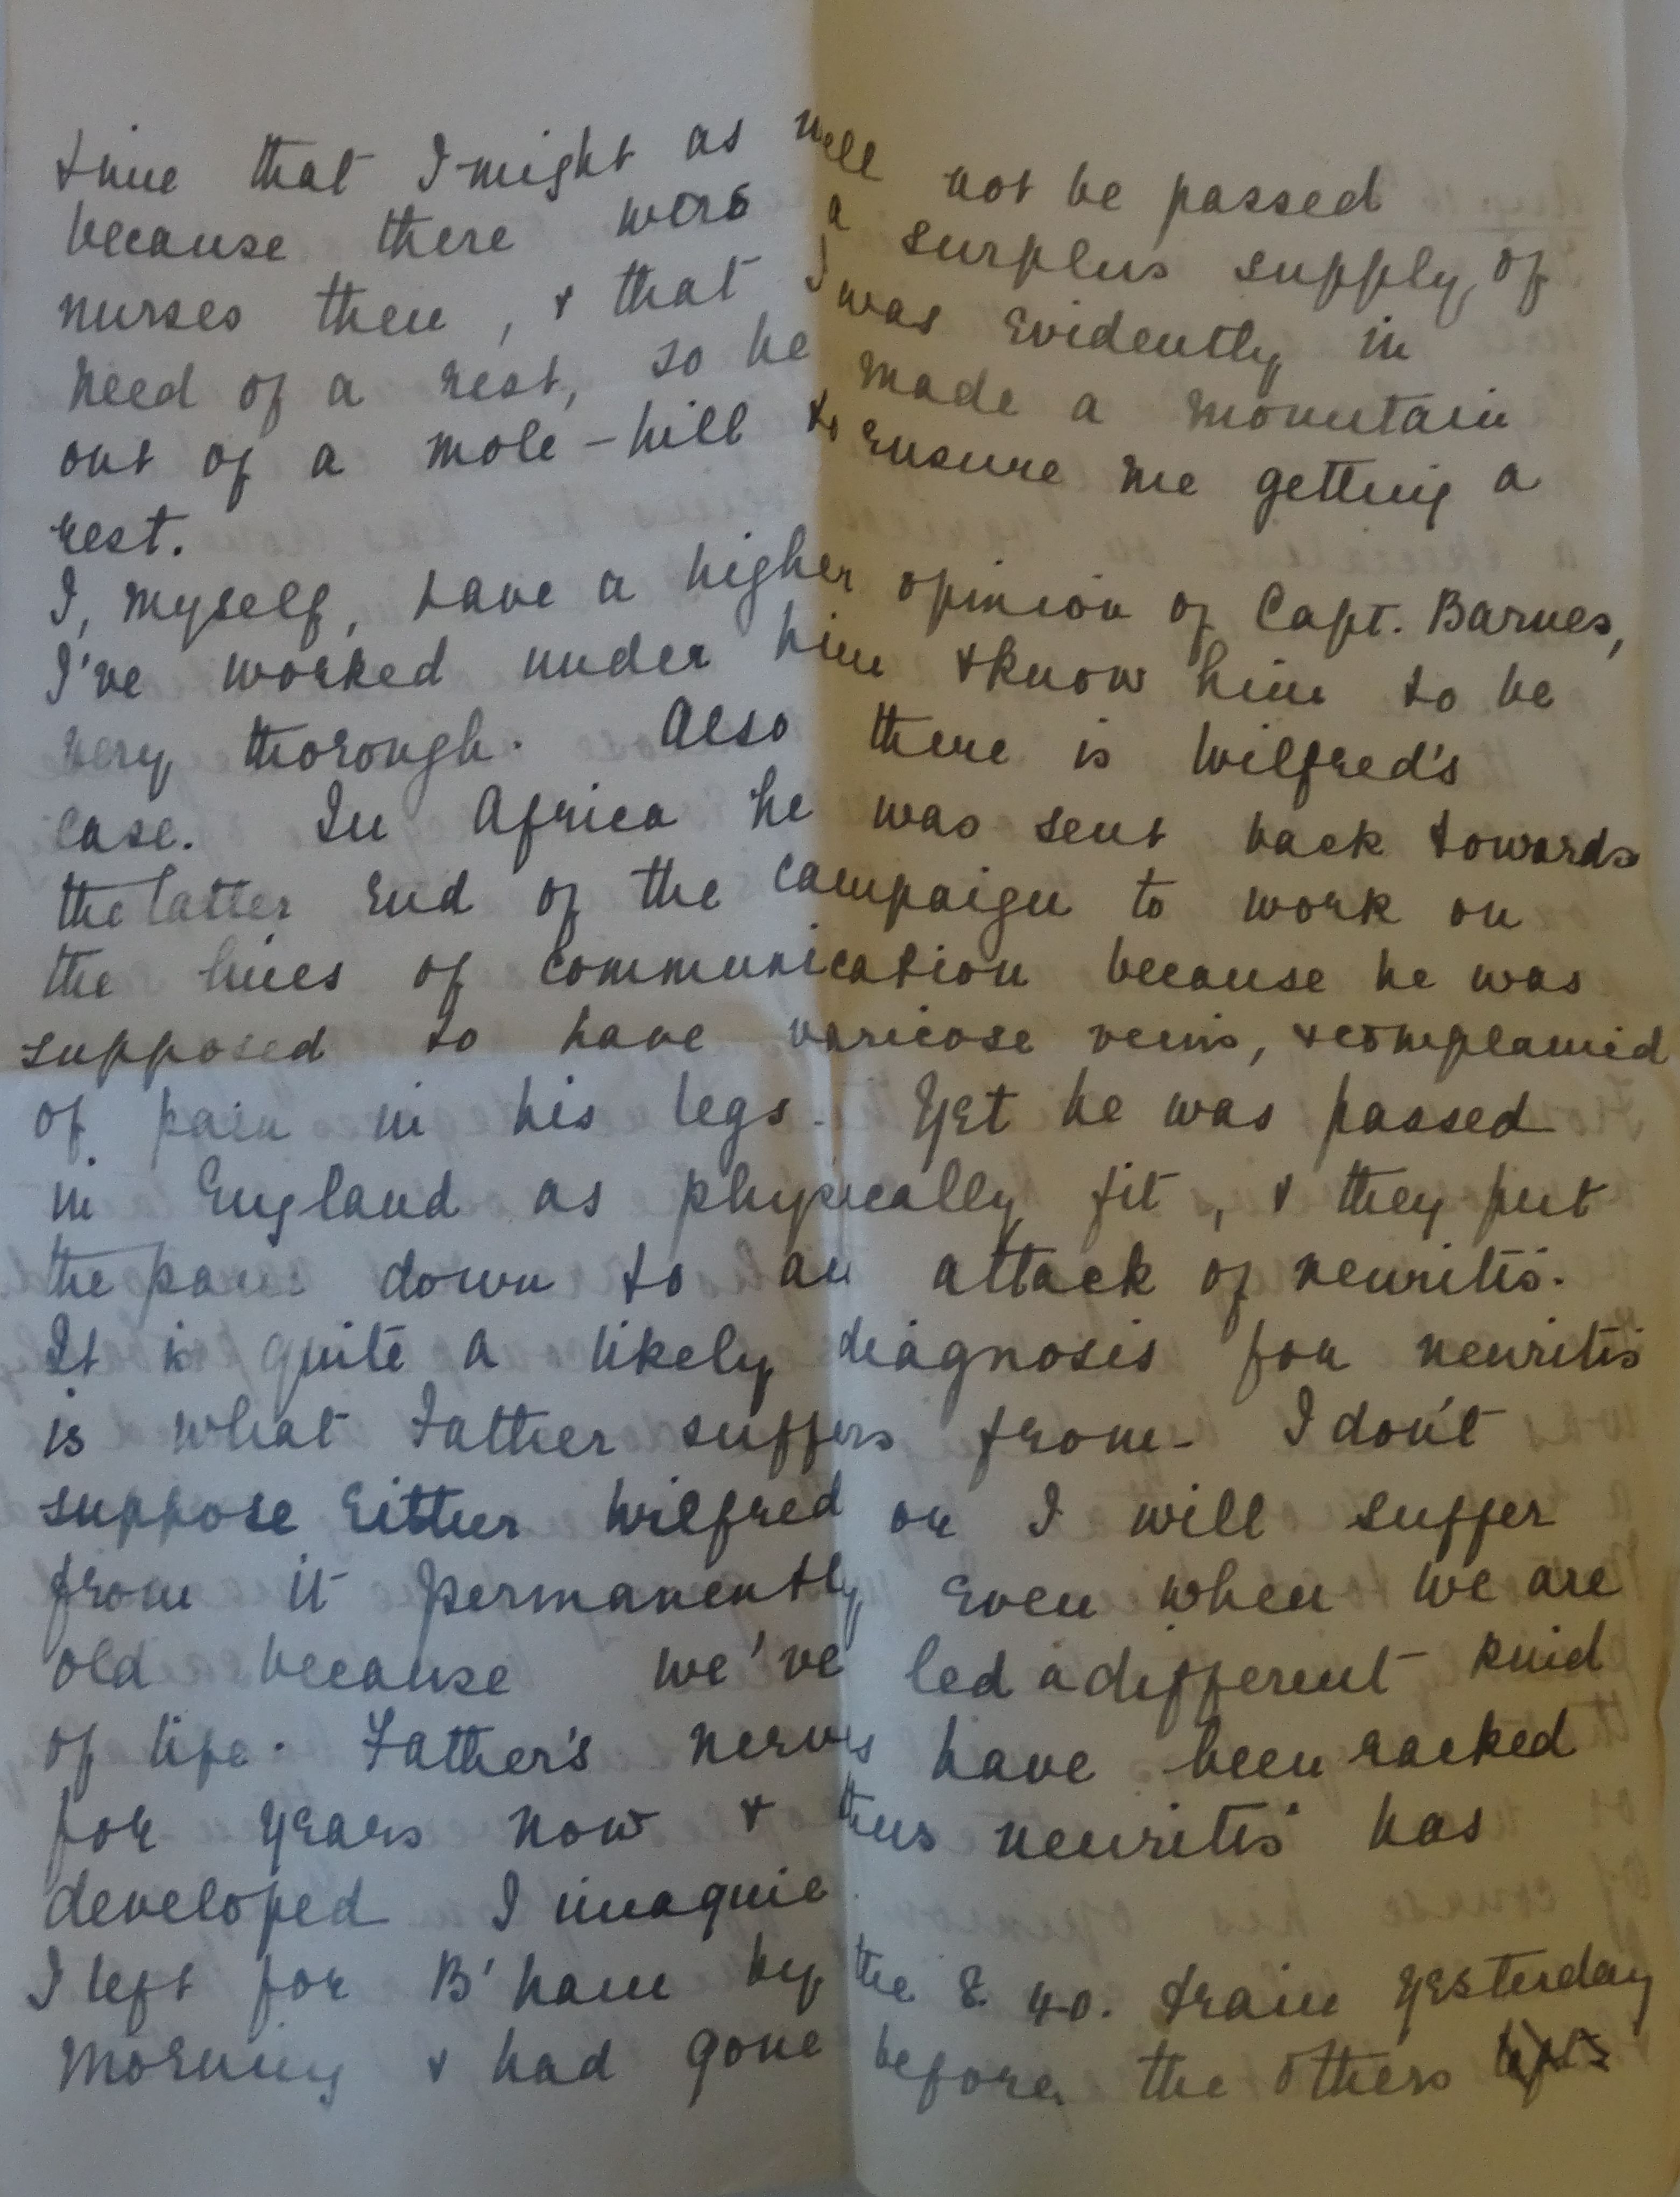 time that I might as well not be passed
because there were a surplus supply of
nurses then, & that I was evidently in
need of a rest, so he made a mountain
out of a mole-hill to ensure me getting a
rest.
I, myself, have a higher opinion of Capt. Barnes,
I've worked under him & know him to be
very thorough. Also there is Wilfred's
case. In Africa he was sent back towards
the latter end of the campaign to work on
the lines of communication because he was
supposed to have varicose veins, & complained
of pain in his legs. Yet he was passed
in England as physically fit, & they put
the pain down to an attack of neuritis.
It is quite a likely diagnosis for neuritis
is what Father suffers from - I don't
suppose either Wilfred or I will suffer
from it permanently even when we are
old because we've led a different kind
of life. Father's nerves have been racked
for years now & thus neuritis has
developed I imagine.
I left for B'ham by the 8.40. train yesterday
morning & had gone before the others